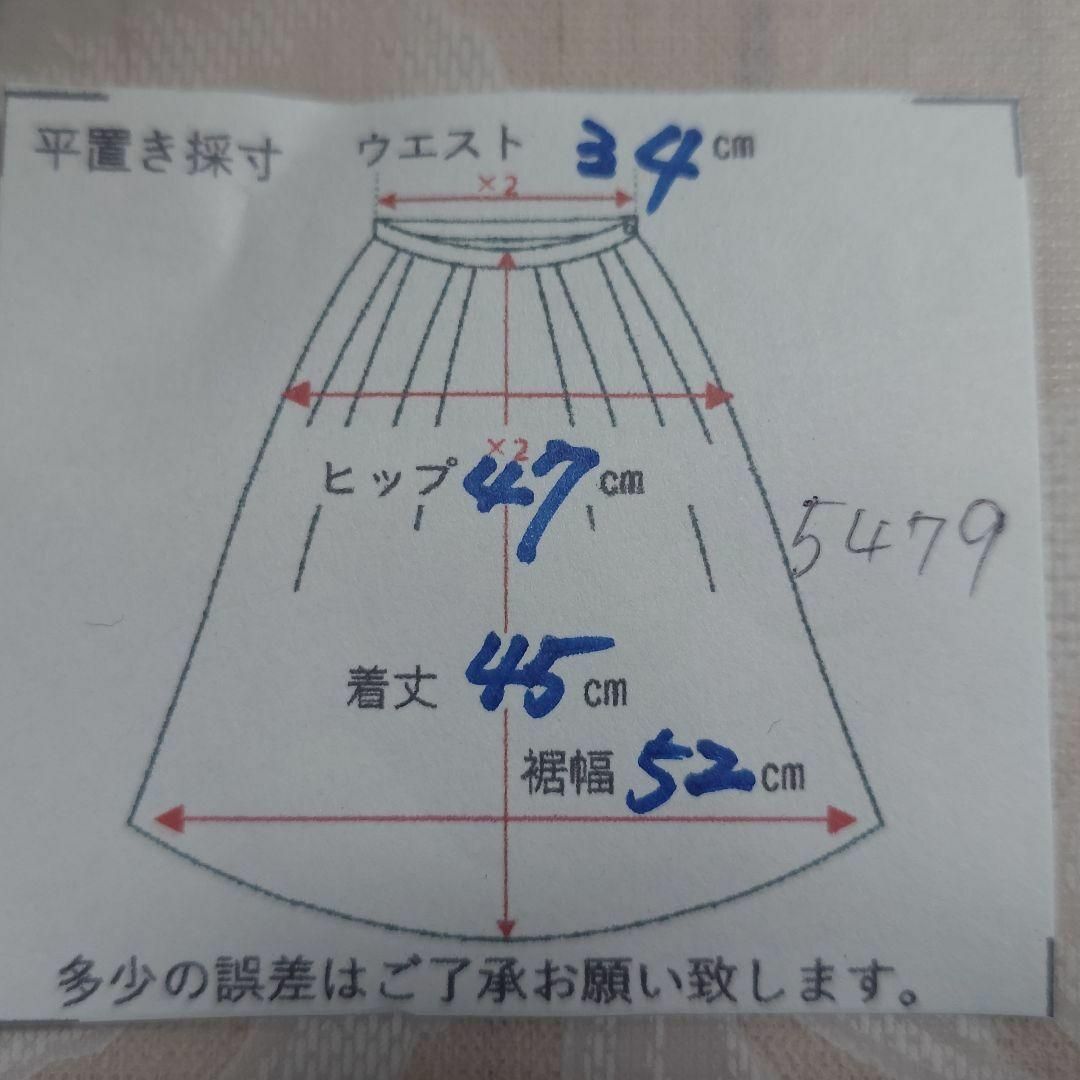 平置き採寸 ウエスト 34cm
×2
×2
ヒップ 47cm
5479
着丈 45cm
裾幅 52cm
多少の誤差はご了承お願い致します。